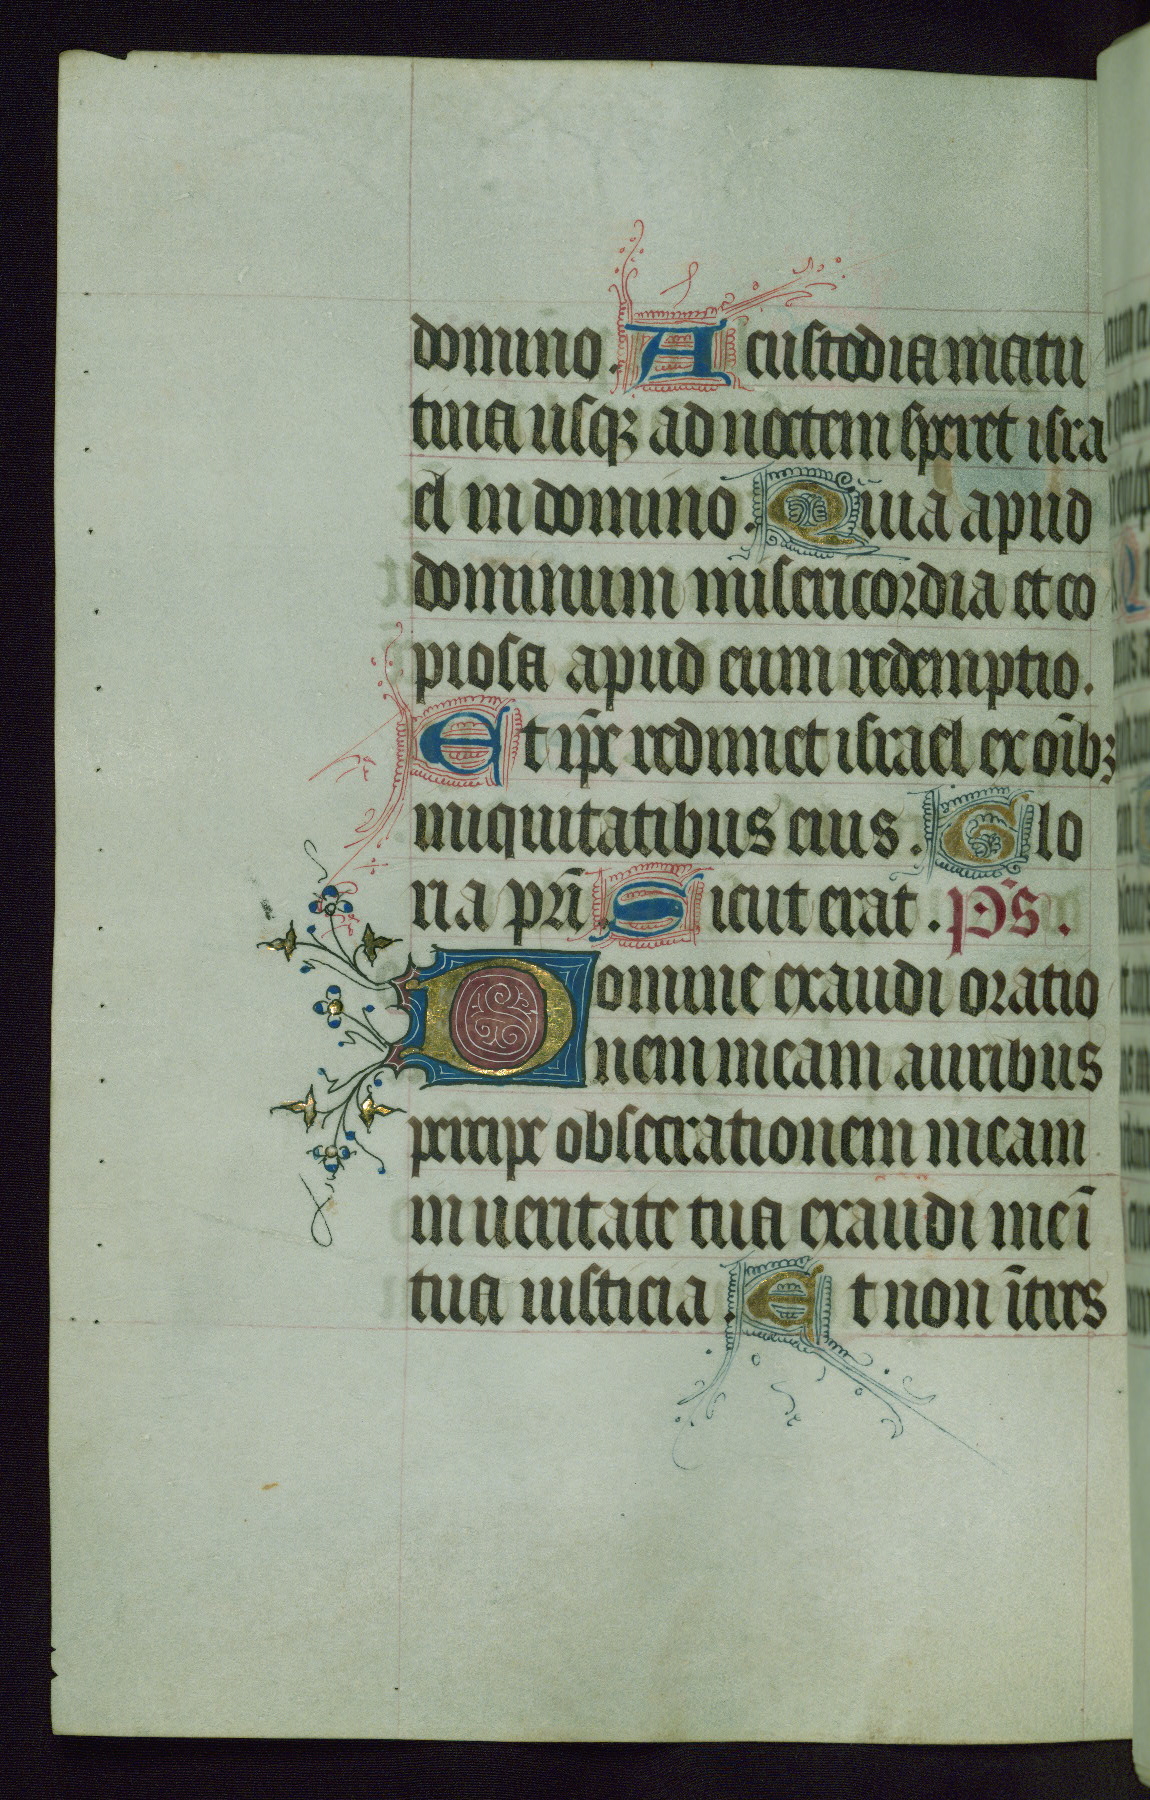 domino. A custodia matu
tina usqꝫ ad noctem speret isra
el in domino. Quia apud
dominum misericordia et co
piosa apud eum redemptio.
Et ip̄e redimet israel ex oīb;
iniquitatibus eius. Glo
ria pr̄i. Sicut erat. p̄s.
Domine exaudi oratio
nem meam auribus
percipe obsecrationem meam
in ueritate tua exaudi me ī
tua iusticia. Et non ītres